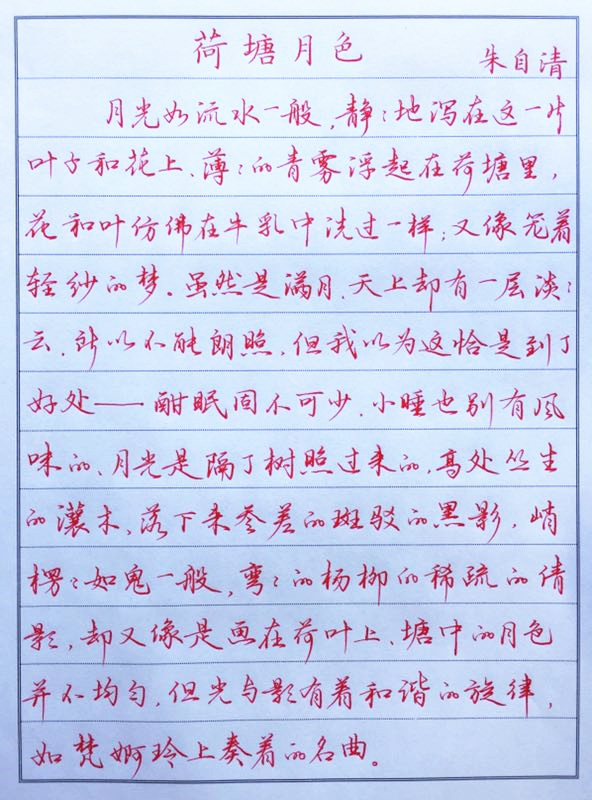 荷塘月色
朱自清
月光如流水一般,静:地泻在这一片
叶子和花上、薄:的青雾浮起在荷塘里,
花和叶仿佛在牛乳中洗过一样;又像笼着
轻纱的梦。虽然是满月,天上却有一层淡:
云,所以不能朗照,但我以为这恰是到了
好处——酣眠固不可少,小睡也别有风
味的、月光是隔了树照过来的,高处丛生
的灌木,落下来参差的斑驳的黑影,峭
楞:如鬼一般,弯:的杨柳的稀疏的倩
影,却又像是画在荷叶上、塘中的月色
并不均匀,但光与影有着和谐的旋律,
如梵婀玲上奏着的名曲。